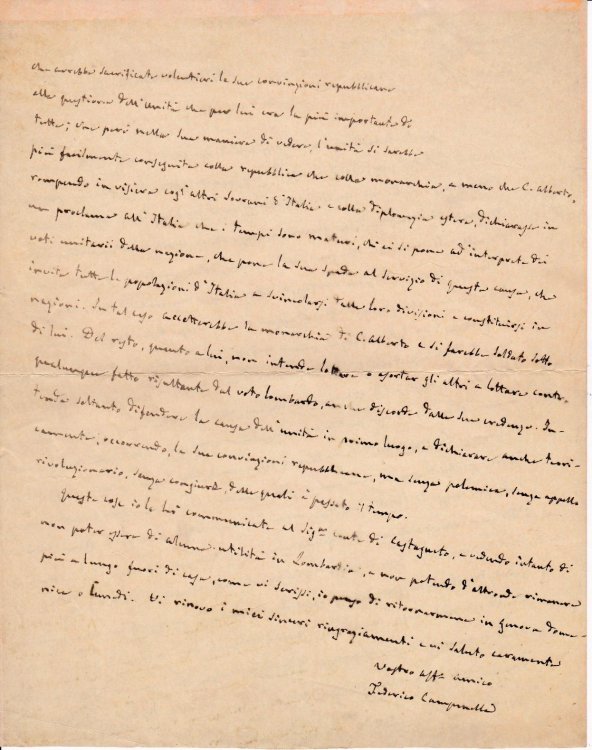 che avrebbe sacrificate volentieri le sue convinzioni repubblicane
alla questione dell'unità che per lui era la più importante di
tutte; che però nella sua maniera di vedere, l'unità si sarebbe
più facilmente conseguita colla repubblica che colla monarchia, a meno che C. Alberto,
rompendo in visiera cogl'altri Sovrani d'Italia e colla diplomazia estera, dichiarasse in
un proclama all'Italia che i tempi sono maturi, ch'ei si pone ad interprete dei
voti unitarii della nazione, che pone la sua spada al servizio di questa causa, che
invita tutte le popolazioni d'Italia a svincolarsi dalle loro divisioni e constituirsi in
nazioni. In tal caso accetterebbe la monarchia di C. Alberto e si farebbe soldato sotto
di lui. Del resto, quanto a lui, non intende lottare o esortar gli altri a lottare contro
qualunque fatto risultante dal voto lombardo, anche discorde dalle sue credenze. In-
tende soltanto difendere la causa dell'unità in primo luogo, e dichiarare anche teori-
camente, occorrendo, le sue convinzioni repubblicane, ma senza polemica, senza appello
rivoluzionario, senza congiure, delle quali è passato il tempo.
Queste cose io le ho communicate al Sigr. conte di Castagneto, e vedendo intanto di
non poter essere di alcuna utilità in Lombardia, e non potendo d'altronde rimanere
più a lungo fuori di casa, come vi scrissi, io penso di ritornarmene in Genova dome-
nica o Lunedì. Vi rinovo i miei sinceri ringraziamenti e vi saluto caramente
Vostro affo. amico
Federico Campanella